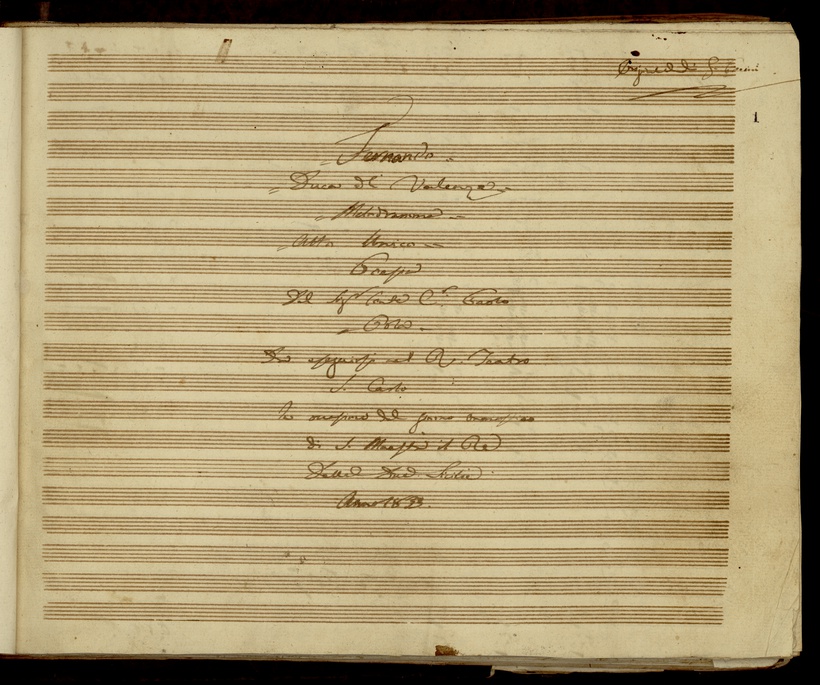 Originale di G.
1
Fernando
Duca di Valenza
Melodramma
Atto Unico
Poesia
Del Sigr Conte Cr. Paolo
Pola
Da eseguirsi nel R. Teatro
S. Carlo
In occasione del giorno onomastico
di S. Maestà il Re
Delle Due Sicilie
Anno 1833.